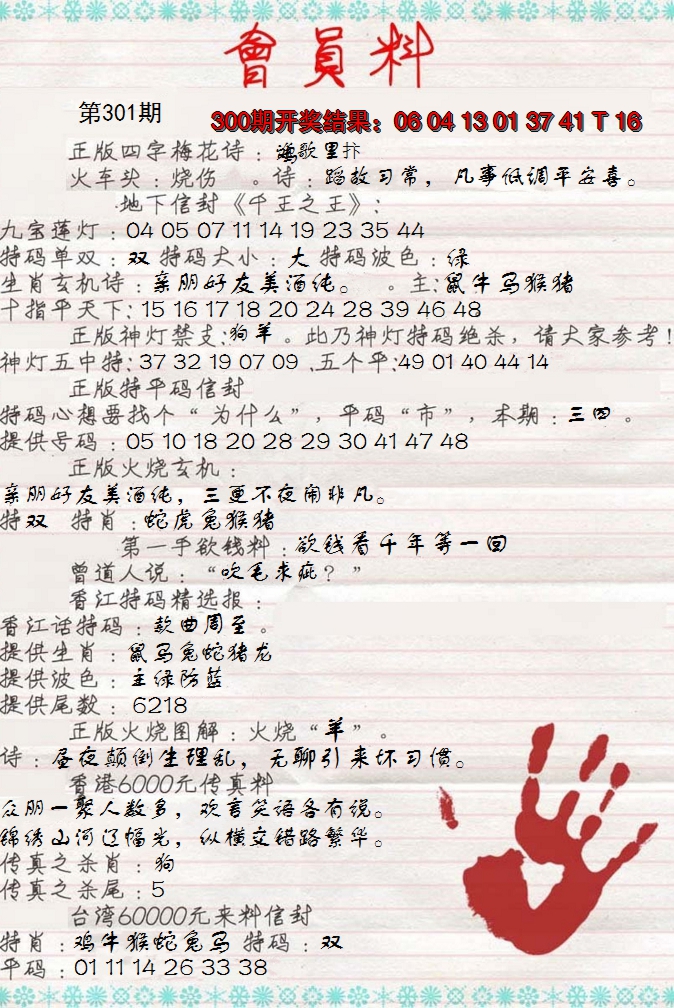 會員料
第301期
300期开奖结果：06 04 13 01 37 41 T 16
正版四字梅花诗：渔歌里抃
火车头：烧伤 。诗：蹈故习常，凡事低调平安喜。
地下信封《千王之王》：
九宝莲灯：04 05 07 11 14 19 23 35 44
特码单双：双 特码大小：大 特码波色：绿
生肖玄机诗：亲朋好友美酒纯。 。主：鼠牛马猴猪
十指平天下：15 16 17 18 20 24 28 39 46 48
正版神灯禁支：狗羊。此乃神灯特码绝杀，请大家参考！
神灯五中特：37 32 19 07 09 .五个平：49 01 40 44 14
正版特平码信封
特码心想要找个“为什么”，平码“市”，本期：三四。
提供号码：05 10 18 20 28 29 30 41 47 48
正版火烧玄机：
亲朋好友美酒纯，三更不夜闹非凡。
特双 特肖：蛇虎兔猴猪
第一手欲钱料：欲钱看千年等一回
曾道人说：“吹毛求疵？”
香江特码精选报：
香江话特码：款曲周至。
提供生肖：鼠马兔蛇猪龙
提供波色：主绿防蓝
提供尾数：6218
正版火烧图解：火烧“羊”。
诗：昼夜颠倒生理乱，无聊引来坏习惯。
香港6000元传真料
众朋一聚人数多，欢言笑语各有说。
锦绣山河辽幅光，纵横交错路繁华。
传真之杀肖：狗
传真之杀尾：5
台湾60000元来料信封
特肖：鸡牛猴蛇兔马 特码：双
平码：01 11 14 26 33 38